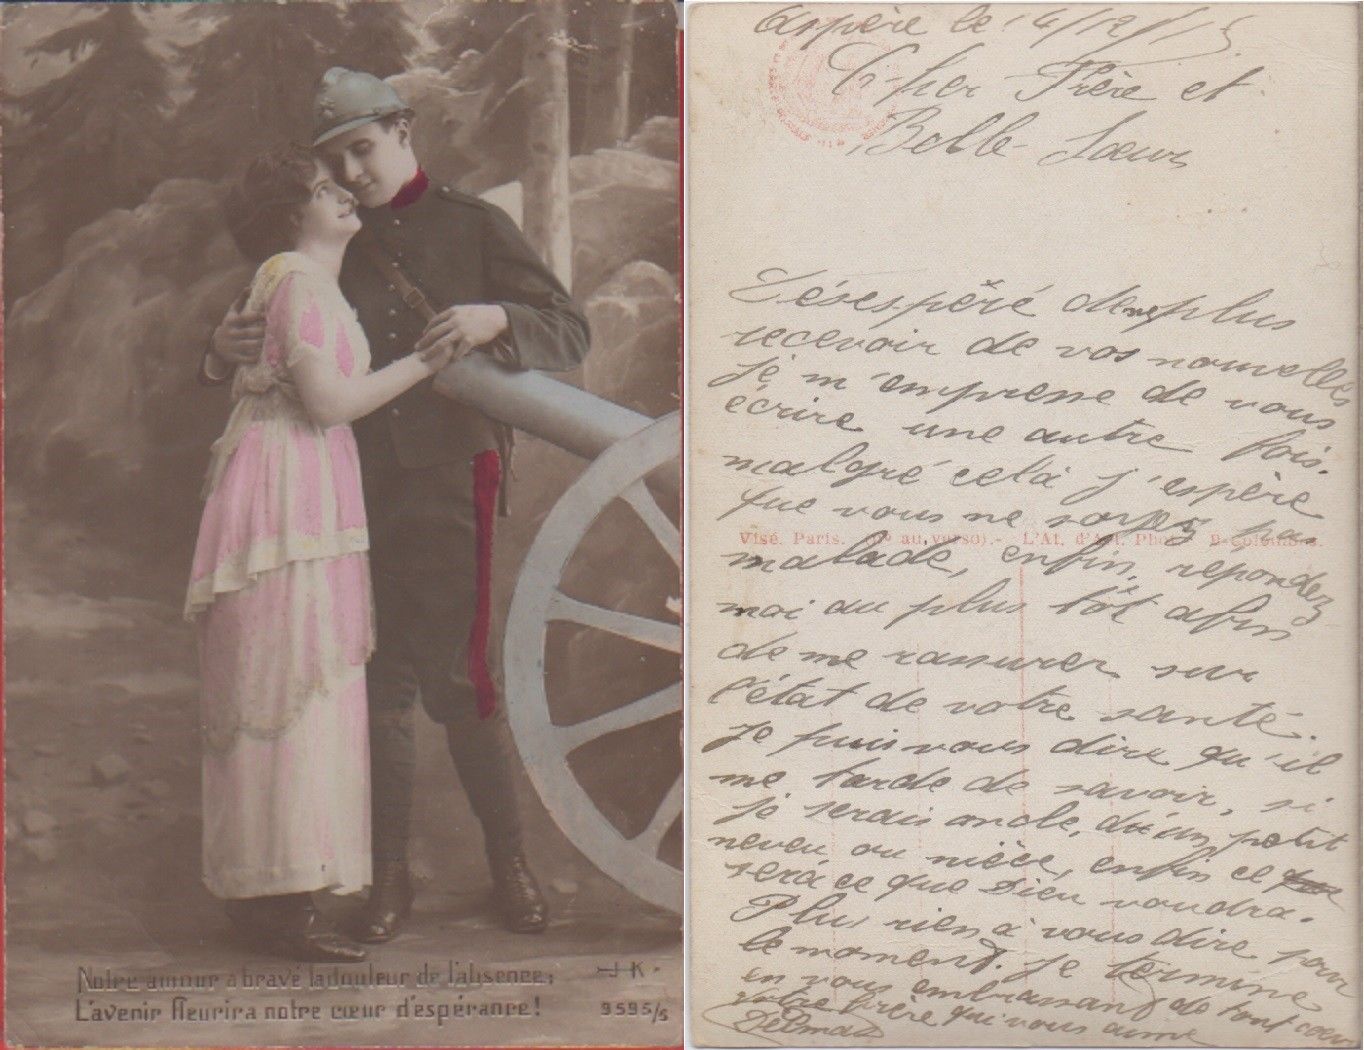 Notre amour a bravé la douleur de l'absence;
L'avenir fleurira notre cœur d'espérance!
JK
9595/5
le 14/12/15
Cher Frère et
Belle Sœur
Désespéré de ne plus
recevoir de vos nouvelles
je m'empresse de vous
écrire une autre fois.
malgré celà j'espère
que vous ne soyez pas
Visé. Paris. au verso).- L'At. d'Art. Phot.
malade, enfin, repondez
moi au plus tôt afin
de me rassurer sur
l'état de votre santé.
Je puis vous dire qu'il
me tarde de savoir, si
je serais oncle, d'un petit
neveu ou nièce, enfin ce
sera ce que Dieu voudra.
Plus rien à vous dire pour
le moment. Je termine
en vous embrassant de tout cœur
Votre frère qui vous aime
Delmas